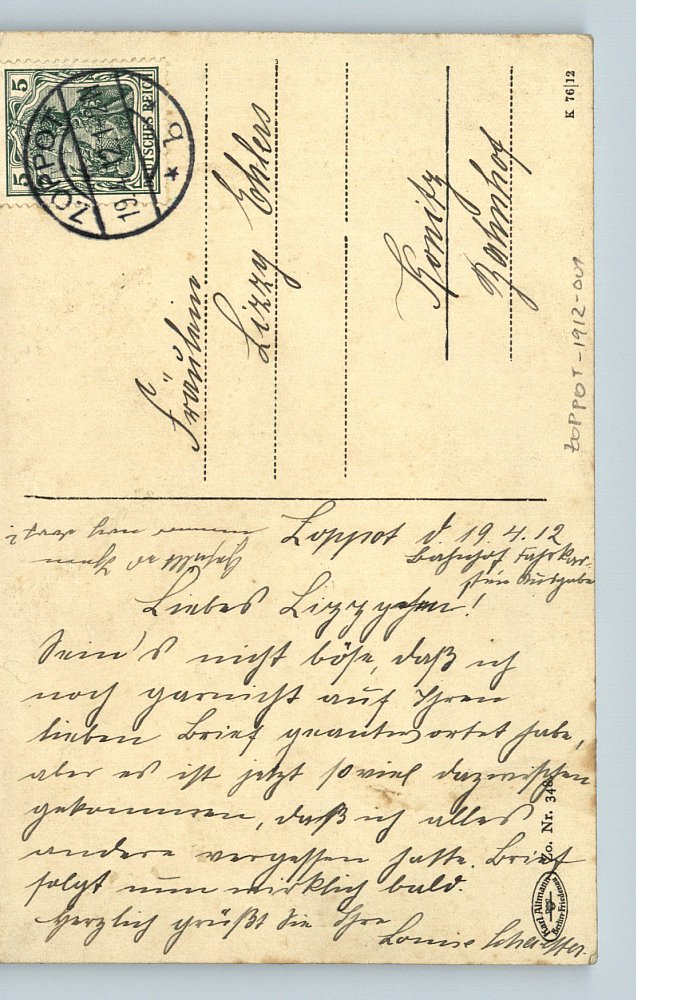 5
5
DEUTSCHES REICH
ZOPPOT
19.4.12
* b
Fräulein
Lizzy Ehlers
Konitz
Bahnhof
K 76|12
ZOPPOT-1912-001
Zoppot d. 19.4.12
Bahnhof Fahrkar-
ten Ausgabe
Liebes Lizzychen!
Sein's nicht böse, daß ich
noch garnicht auf Ihren
lieben Brief geantwortet habe,
aber es ist jetzt soviel dazwischen
gekommen, daß ich alles
andere vergessen hatte. Brief
folgt nun wirklich bald.
Herzlich grüßt Sie Ihre
Louise
Vo. Nr. 348
Karl Altmann
Berlin-Friedenau